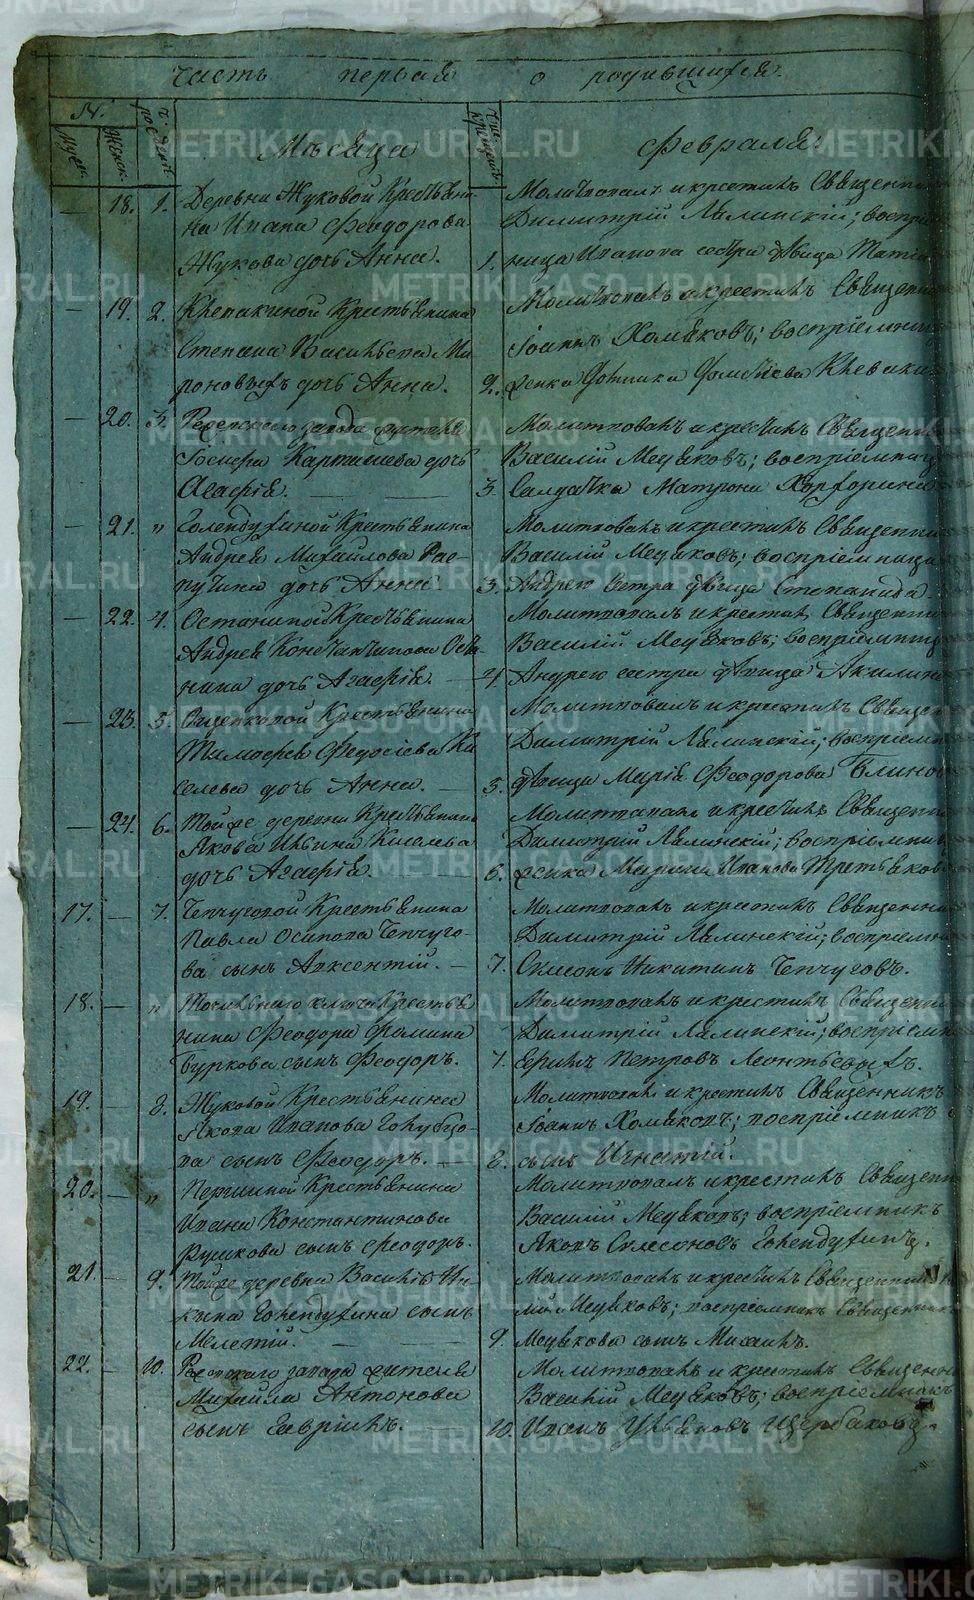 Часть первая о родившихся.
N.
Муж.
Женск.
Мѣсяца
Февраля.
18. 1. Деревни Жуковой Крестьяни-
на Ивана Феодорова
Жукова дочь Анна.
Молитвовалъ и крестилъ Священни
Димитрій Лялинскій; воспрі
1. ница Иванова сестра дѣвица
19. 2. Клепакиной Крестьянина
Степана Васильева Ми-
роновыхъ дочь Анна.
Молитвовалъ и крестилъ Священни
Іоаннъ Холмяковъ; воспріемниц
2.
20. 3. Режевского завода жителя
Карташева дочь
Агафія.
Молитвовалъ и крестилъ Священни
Василій Медяковъ; воспріемниц
3. Салдатка Матрона
21. " Голендухиной Крестьянина
Андрея Михайлова Рас-
путина дочь Анна.
Молитвовалъ и крестилъ Священни
Василій Медяковъ; воспріемница
3. Андрею сестра дѣвица Степанида.
22. 4. Останиной Крестьянина
Андрея Константинова Оста-
нина дочь Агафія.
Молитвовалъ и крестилъ Священни
Василій Медяковъ; воспріемниц
4. Андрею сестра дѣвица Акилина
23. 5. Ощепковой Крестьянина
Тимофея Федосіева Ки
селева дочь Анна.
Молитвовалъ и крестилъ Священ
Димитрій Лялинскій; воспріем
5. дѣвица Марія Феодорова Блино
24. 6. Той же деревни Крестьянина
Якова Ильина Киселева
дочь Агафія.
Молитвовалъ и крестилъ Священ
Димитрій Лялинскій; воспріемни
6. Марина Иванова Третьяков
17. 7. Чепчуговой Крестьянина
Павла Осипова Чепчуго-
ва сынъ Авксентій.
Молитвовалъ и крестилъ Священни
Димитрій Лялинскій; воспріемн
7. Симеонъ Никитинъ Чепчуговъ.
18. " ключа Крестья
нина Феодора Фомина
Буркова сынъ Феодоръ.
Молитвовалъ и крестилъ Священни
Димитрій Лялинскій; воспріемн
7. Петровъ Леонтьевыхъ.
19. 8. Жуковой Крестьянина
Якова Иванова Голубцо-
ва сынъ Феодоръ.
Молитвовалъ и крестилъ Священникъ
Іоаннъ Холмяковъ; воспріемникъ
8. сынъ Игнатій.
20. " Першиной Крестьянина
Ивана Константинова
Рушкова сынъ Феодоръ.
Молитвовалъ и крестилъ Священ
Василій Медяковъ; воспріемникъ
Яковъ Симеоновъ Голендухинъ.
21. 9. Той же деревни Василія Ни-
кина Голендухина сынъ
Мелетій.
Молитвовалъ и крестилъ Священни
лій Медяковъ; воспріемникъ Священник
9. Медякова сынъ Михаилъ.
22. 10. Режевского завода жителя
Михаила Антонова
сынъ Гавріилъ.
Молитвовалъ и крестилъ Священни
Василій Медяковъ; воспріемникъ
10. Иванъ Ульяновъ Щербаковъ.
METRIKI.GASO-URAL.RU